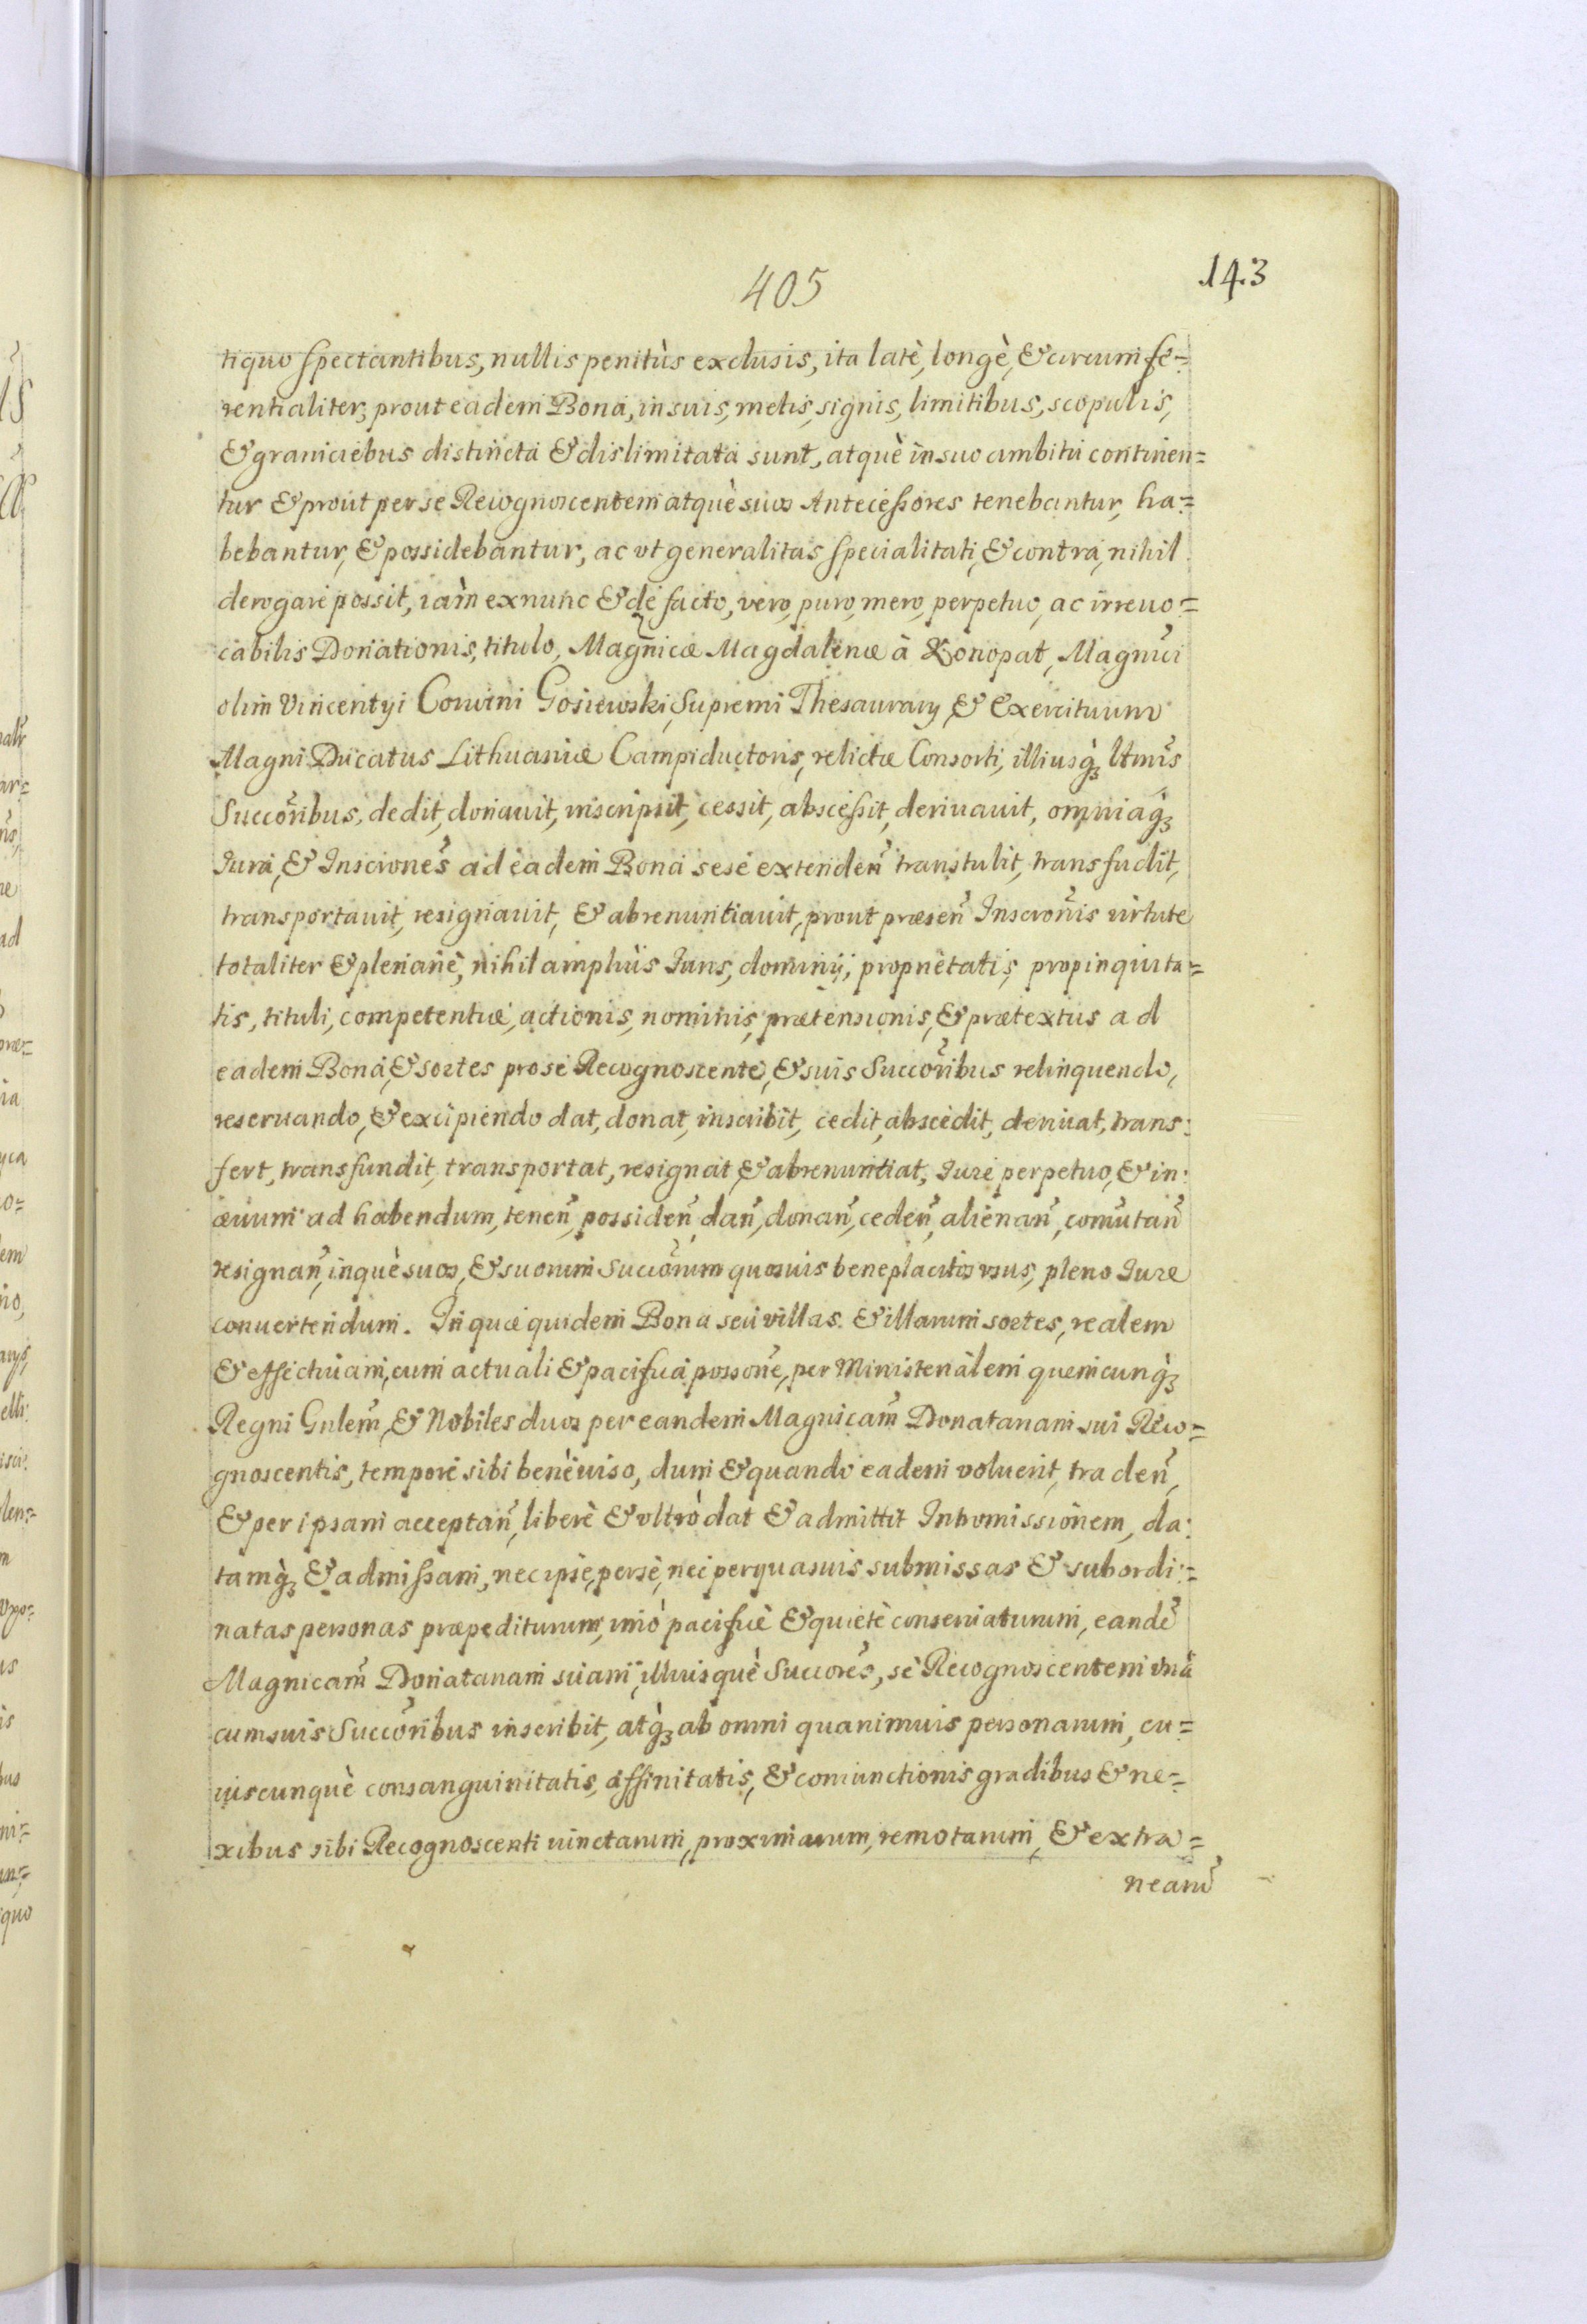 405
143
tiquo spectantibus, nullis penitùs exclusis, ita latè, longè, & circumfe=
rentialiter, prout eadem Bona, in suis, metis, signis, limitibus, scopulis,
& graniciebus distincta & dislimitata sunt, atquè in suo ambitu continen=
tur & prout per se Recognoscentem atquè suos Antecessores tenebantur, ha=
bebantur, & possidebantur, ac vt generalitas specialitati, & contra, nihil
derogare possit, iam ex nunc & de facto, vero, puro, mero, perpetuo, ac irreuo=
cabilis Donationis, titulo, Magnicæ Magdalenæ à Konopat, Magnici
olim Vincentyi Corvini Gosiewski, Supremi Thesaurary, & Exercituum
Magni Ducatus Lithuaniæ Campiductoris, relictæ Consorti, illiusq́ꝫ ltmis
Succoribus, dedit, donauit, inscripsit, cessit, abscessit, deriuauit, omniaq́ꝫ
Jura, & Inscrones ad eadem Bona sese extenden̄ transtulit, transfudit,
transportauit, resignauit, & abrenuntiauit, prout præsen̄ Inscronis virtute
totaliter & plenariè, nihil ampliùs Juris, dominij, proprietatis, propinquita=
tis, tituli, competentiæ, actionis, nominis, prætensionis, & prætextus ad
eadem Bona, & sortes pro se Recognoscente, & suis Succoribus relinquendo,
reseruando, & excipiendo dat, donat, inscribit, cedit, abscedit, deriuat, trans:
fert, transfundit, transportat, resignat & abrenuntiat, Jure perpetuo, & in:
æuum ad habendum, tenen̄, possiden̄, dan̄, donan̄, ceden̄, alienan̄, comutan̄
resignan̄, inquè suos, & suorum Succorum quosuis beneplacitos vsus, pleno Jure
conuertendum. In quæ quidem Bona seu villas & illarum sortes, realem
& effectiuam, cum actuali & pacifica possone, per Ministerialem quemcunq́ꝫ
Regni Gnlem, & Nobiles duos per eandem Magnicam Donatariam sui Reco=
gnoscentis, tempore sibi benè uiso, dum & quando eadem voluerit, traden̄,
& per ipsam acceptan̄, liberè & vltrò dat & admittit Intromissionem, da:
tamq́ꝫ & admissam, nec ipse, per se, nec per quasuis submissas & subordi=
natas personas præpediturum, imò pacificè & quietè conseruaturum, eandē
Magnicam Donatariam suam, illiusquè Succores, se Recognoscentem vnà
cum suis Succoribus inscribit, atq́ꝫ ab omni quarumuis personarum, cu=
iuscunquè consanguinitatis, affinitatis, & coniunctionis gradibus & ne=
xibus sibi Recognoscenti uinctarum, proximarum, remotarum, & extra=
nearū